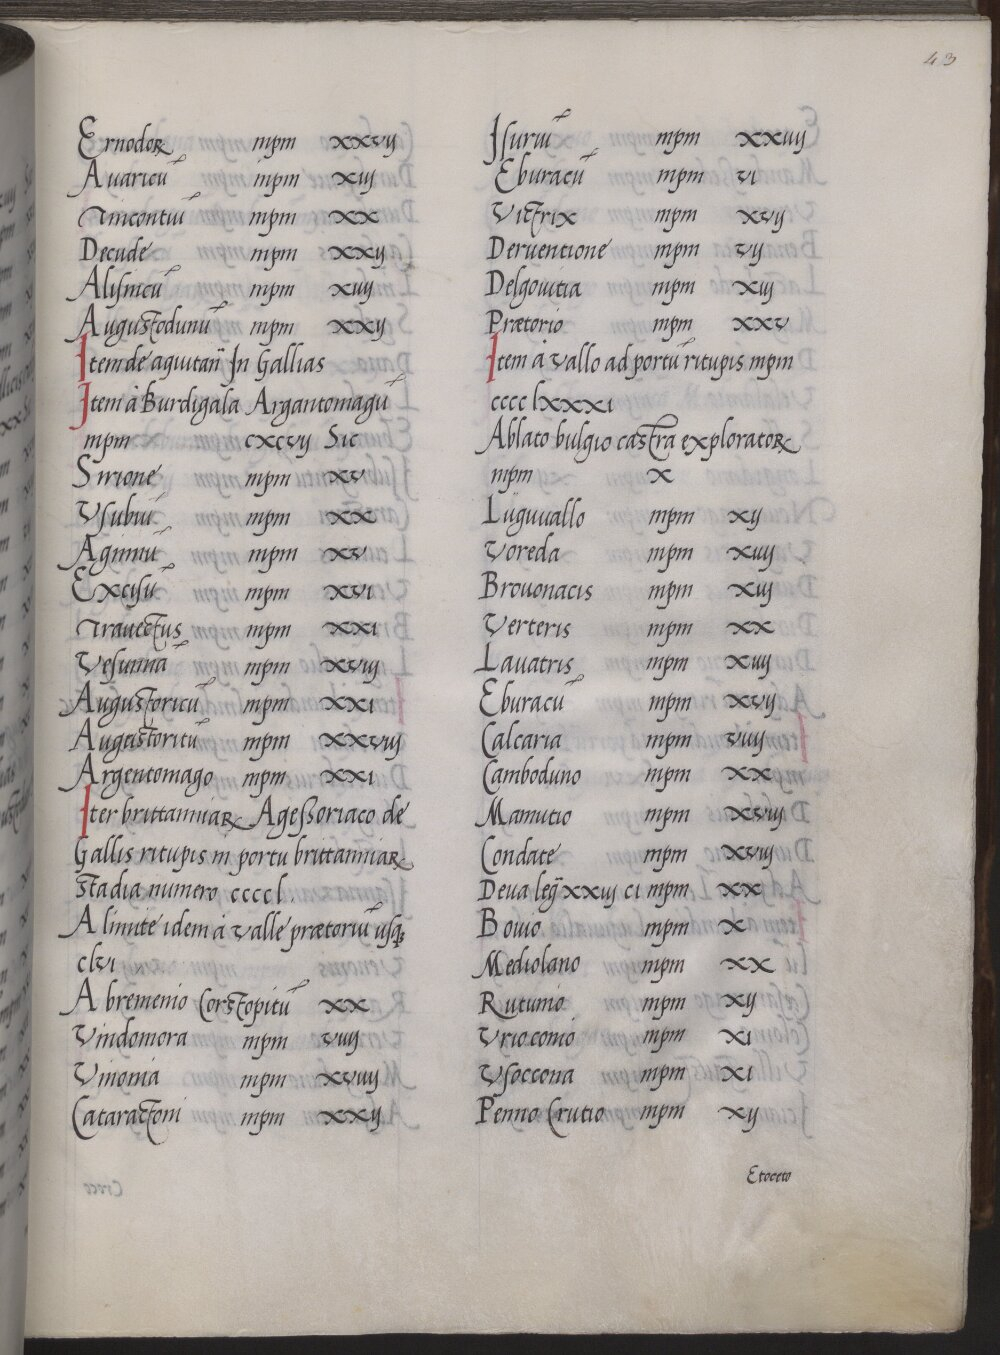 43
Ernodoꝝ mpm xxvij
Auaricũ mpm xiij
Tincontiũ mpm xx
Decide mpm xxij
Alisnicũ mpm xiiij
Augustodunũ mpm xxij
Item de aquitañ In Gallias
Item à Burdigala Argantomagũ
mpm cxcvij Sic
Sirione mpm xv
Vsubiũ mpm xx
Aginnũ mpm xv
Excisũ mpm xvi
Traiectus mpm xxi
Vesunna mpm xviij
Augustoricũ mpm xxi
Augustoritũ mpm xxviij
Argentomago mpm xxi
Iter brittanniaꝝ Agessoriaco de
Gallis ritupis in portu brittanniaꝝ
stadia numero ccccl.
A limite idem à valle prætoriũ usqꝫ
clvi
A bremenio Corstopitũ xx
Vindomora mpm viiij
Vinonia mpm xviiij
Cataractoni mpm xxij
Isuriũ mpm xxiiij
Eburacũ mpm vi
Victrix mpm xvij
Deruentione mpm vij
Delgouitia mpm xiij
Prætorio mpm xxv
Item à vallo ad portũ ritupis mpm
cccc lxxxi
Ablato bulgio castra exploratoꝝ
mpm x
Luguuallo mpm xij
Voreda mpm xiiij
Brouonacis mpm xiij
Verteris mpm xx
Lauatris mpm xiiij
Eburacũ mpm xvij
Calcaria mpm viiij
Camboduno mpm xx
Mamutio mpm xviij
Condate mpm xviij
Deua leg̃ xxiij ci mpm xx
Bouio mpm x
Mediolano mpm xx
Rutunio mpm xij
Vrioconio mpm xi
Vsoccona mpm xi
Penno Crutio mpm xij
Etoceto